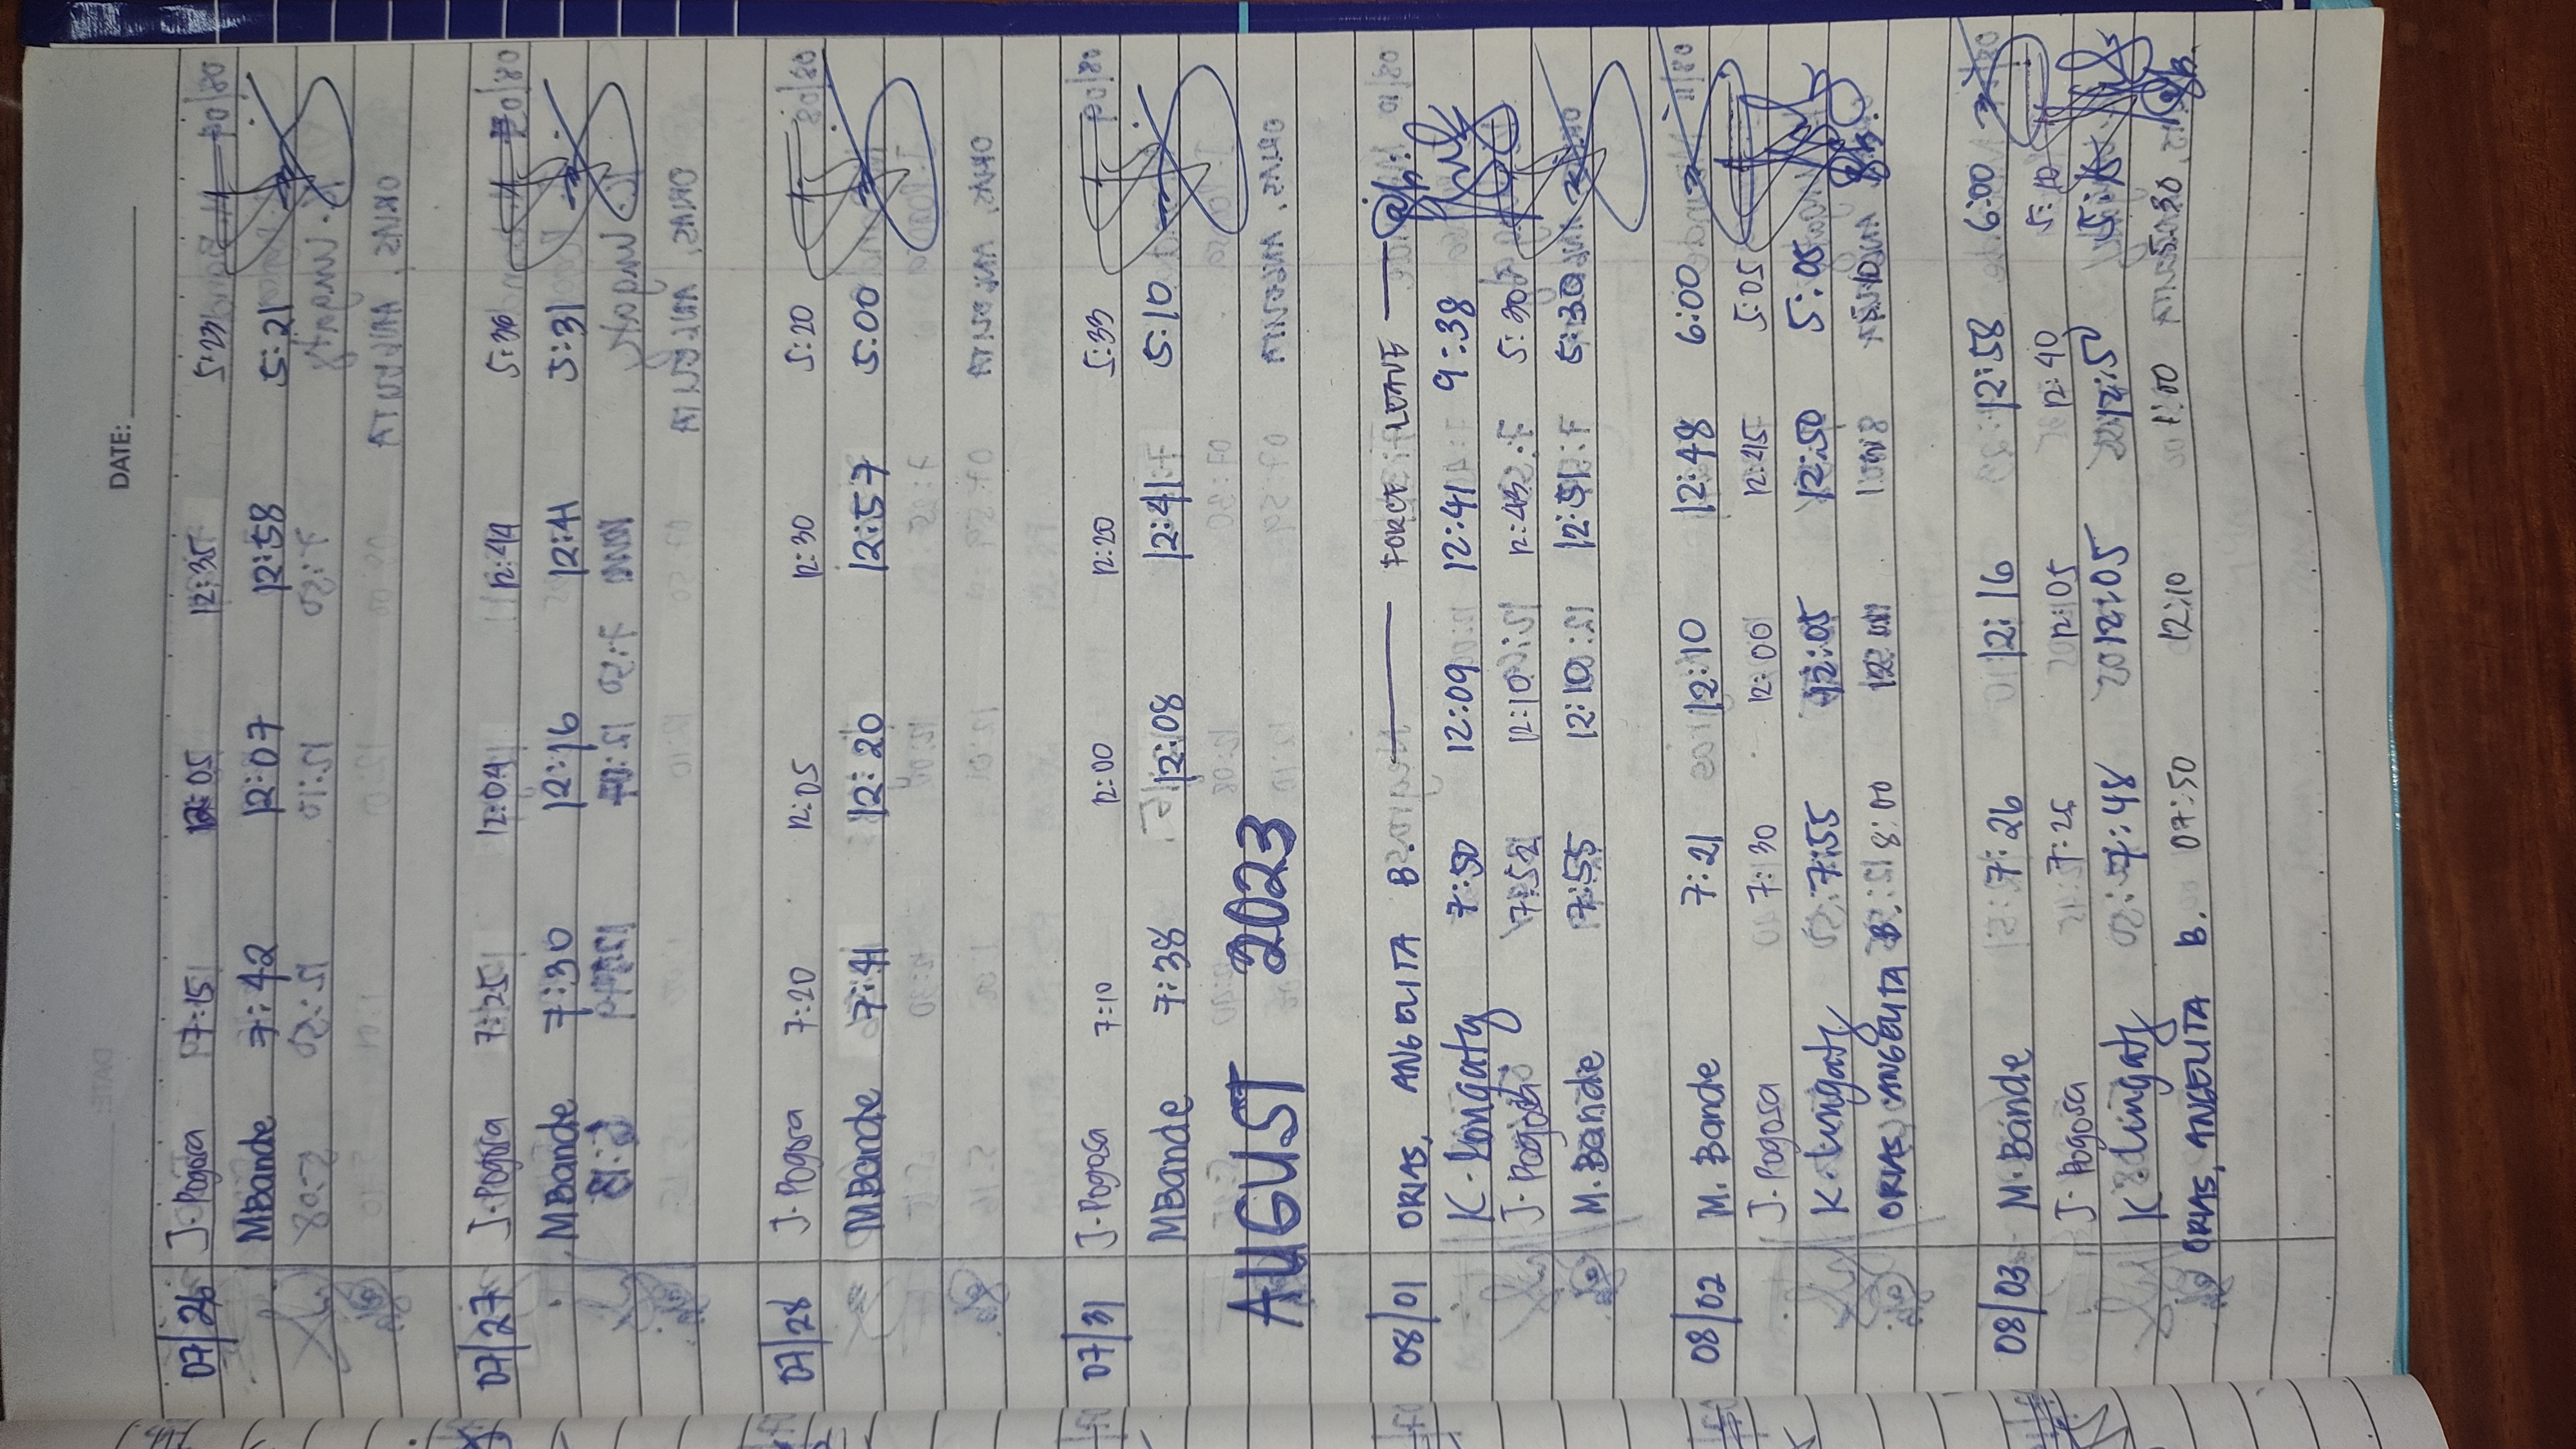 DATE:
07/26 J. Pogosa 7:15 12:05 12:35 5:23
MBande 7:42 12:07 12:58 5:21
07/27 J. Pogosa 7:25 12:04 12:44 5:30
MBande 7:30 12:16 12:41 5:31
07/28 J. Pogosa 7:20 12:05 12:30 5:20
MBande 7:41 12:20 12:57 5:00
07/31 J. Pogosa 7:10 12:00 12:20 5:33
MBande 7:38 12:08 12:41 5:10
AUGUST 2023
08/01 ORIAS, ANGELITA B. FORCE LEAVE
K. Longaty 7:50 12:09 12:41 9:38
J. Pogosa 7:52 12:10 12:43 5:30
M. Bande 7:55 12:10 12:51 5:30
08/02 M. Bande 7:21 12:10 12:48 6:00
J. Pogosa 7:30 12:00 12:45 5:05
K. Lungaty 7:55 12:05 12:50 5:05
ORIAS, ANGELITA B. 8:00 5:10
08/03 M. Bande 7:26 12:16 12:58 6:00
J. Pogosa 7:25 12:05 12:40 5:10
K. Lingaty 7:48 12:05 12:50
ORIAS, ANGELITA B. 07:50 12:10 1:00 5:30